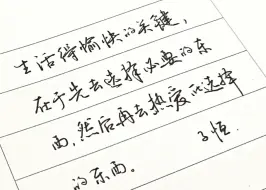 生活得愉快的关键，
在于先去选择必要的东
西，然后再去热爱所选择
的东西。
子恒